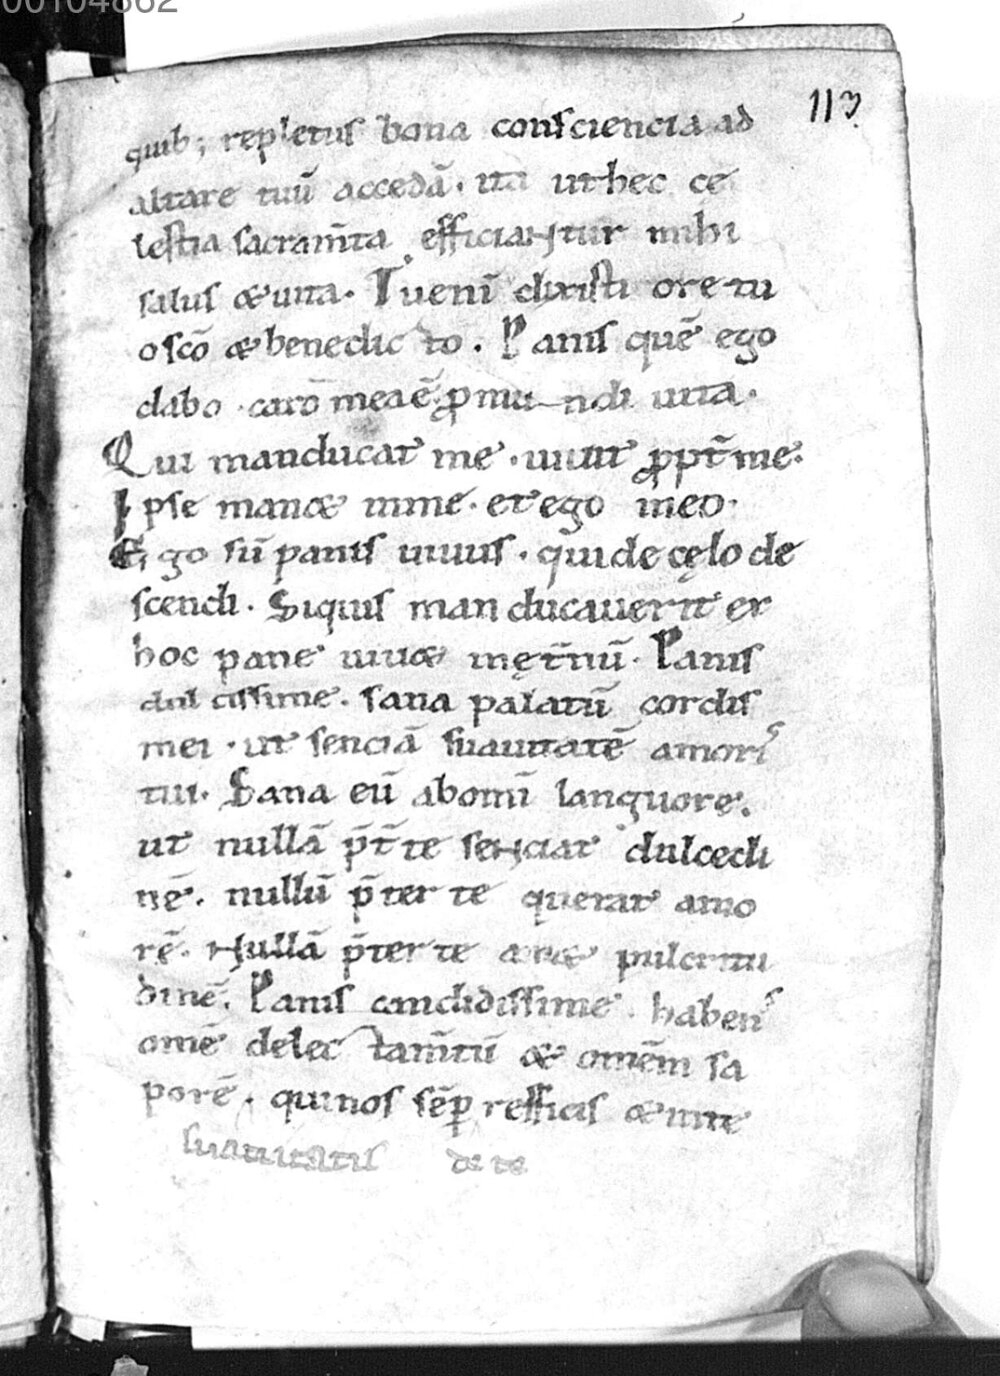 00104862
113
quib; repletus bona consciencia ad
altare tuū accedā. ita ut hec ce
lestia sacram̄ta efficiantur mihi
salus & uita. Iuenī christi ore tu
o scō & benedicto. Panis quē ego
dabo. caro mea ē. ꝓ mundi uita.
Qui manducat me. uiuit ꝓpt̄ me.
Ipse man& in me. et ego in eo.
Ego sū panis uiuus. qui de cęlo de
scendi. Siquis manducauerit ex
hoc pane uiu& in ęt̄nū. Panis
dulcissime. sana palatū cordis
mei. ut senciā suauitatē amoris
tui. Sana eū ab omī languore.
ut nullā p̄t̄ te senciat dulcedi
nē. nullū p̄ter te querat amo
rē. Nullā p̄ter te am& pulcritu
dinē. Panis candidissime. habens
omē delectam̄tū & omēm sa
porē. qui nos sēp̄ refficis & in te
suauitatis de te